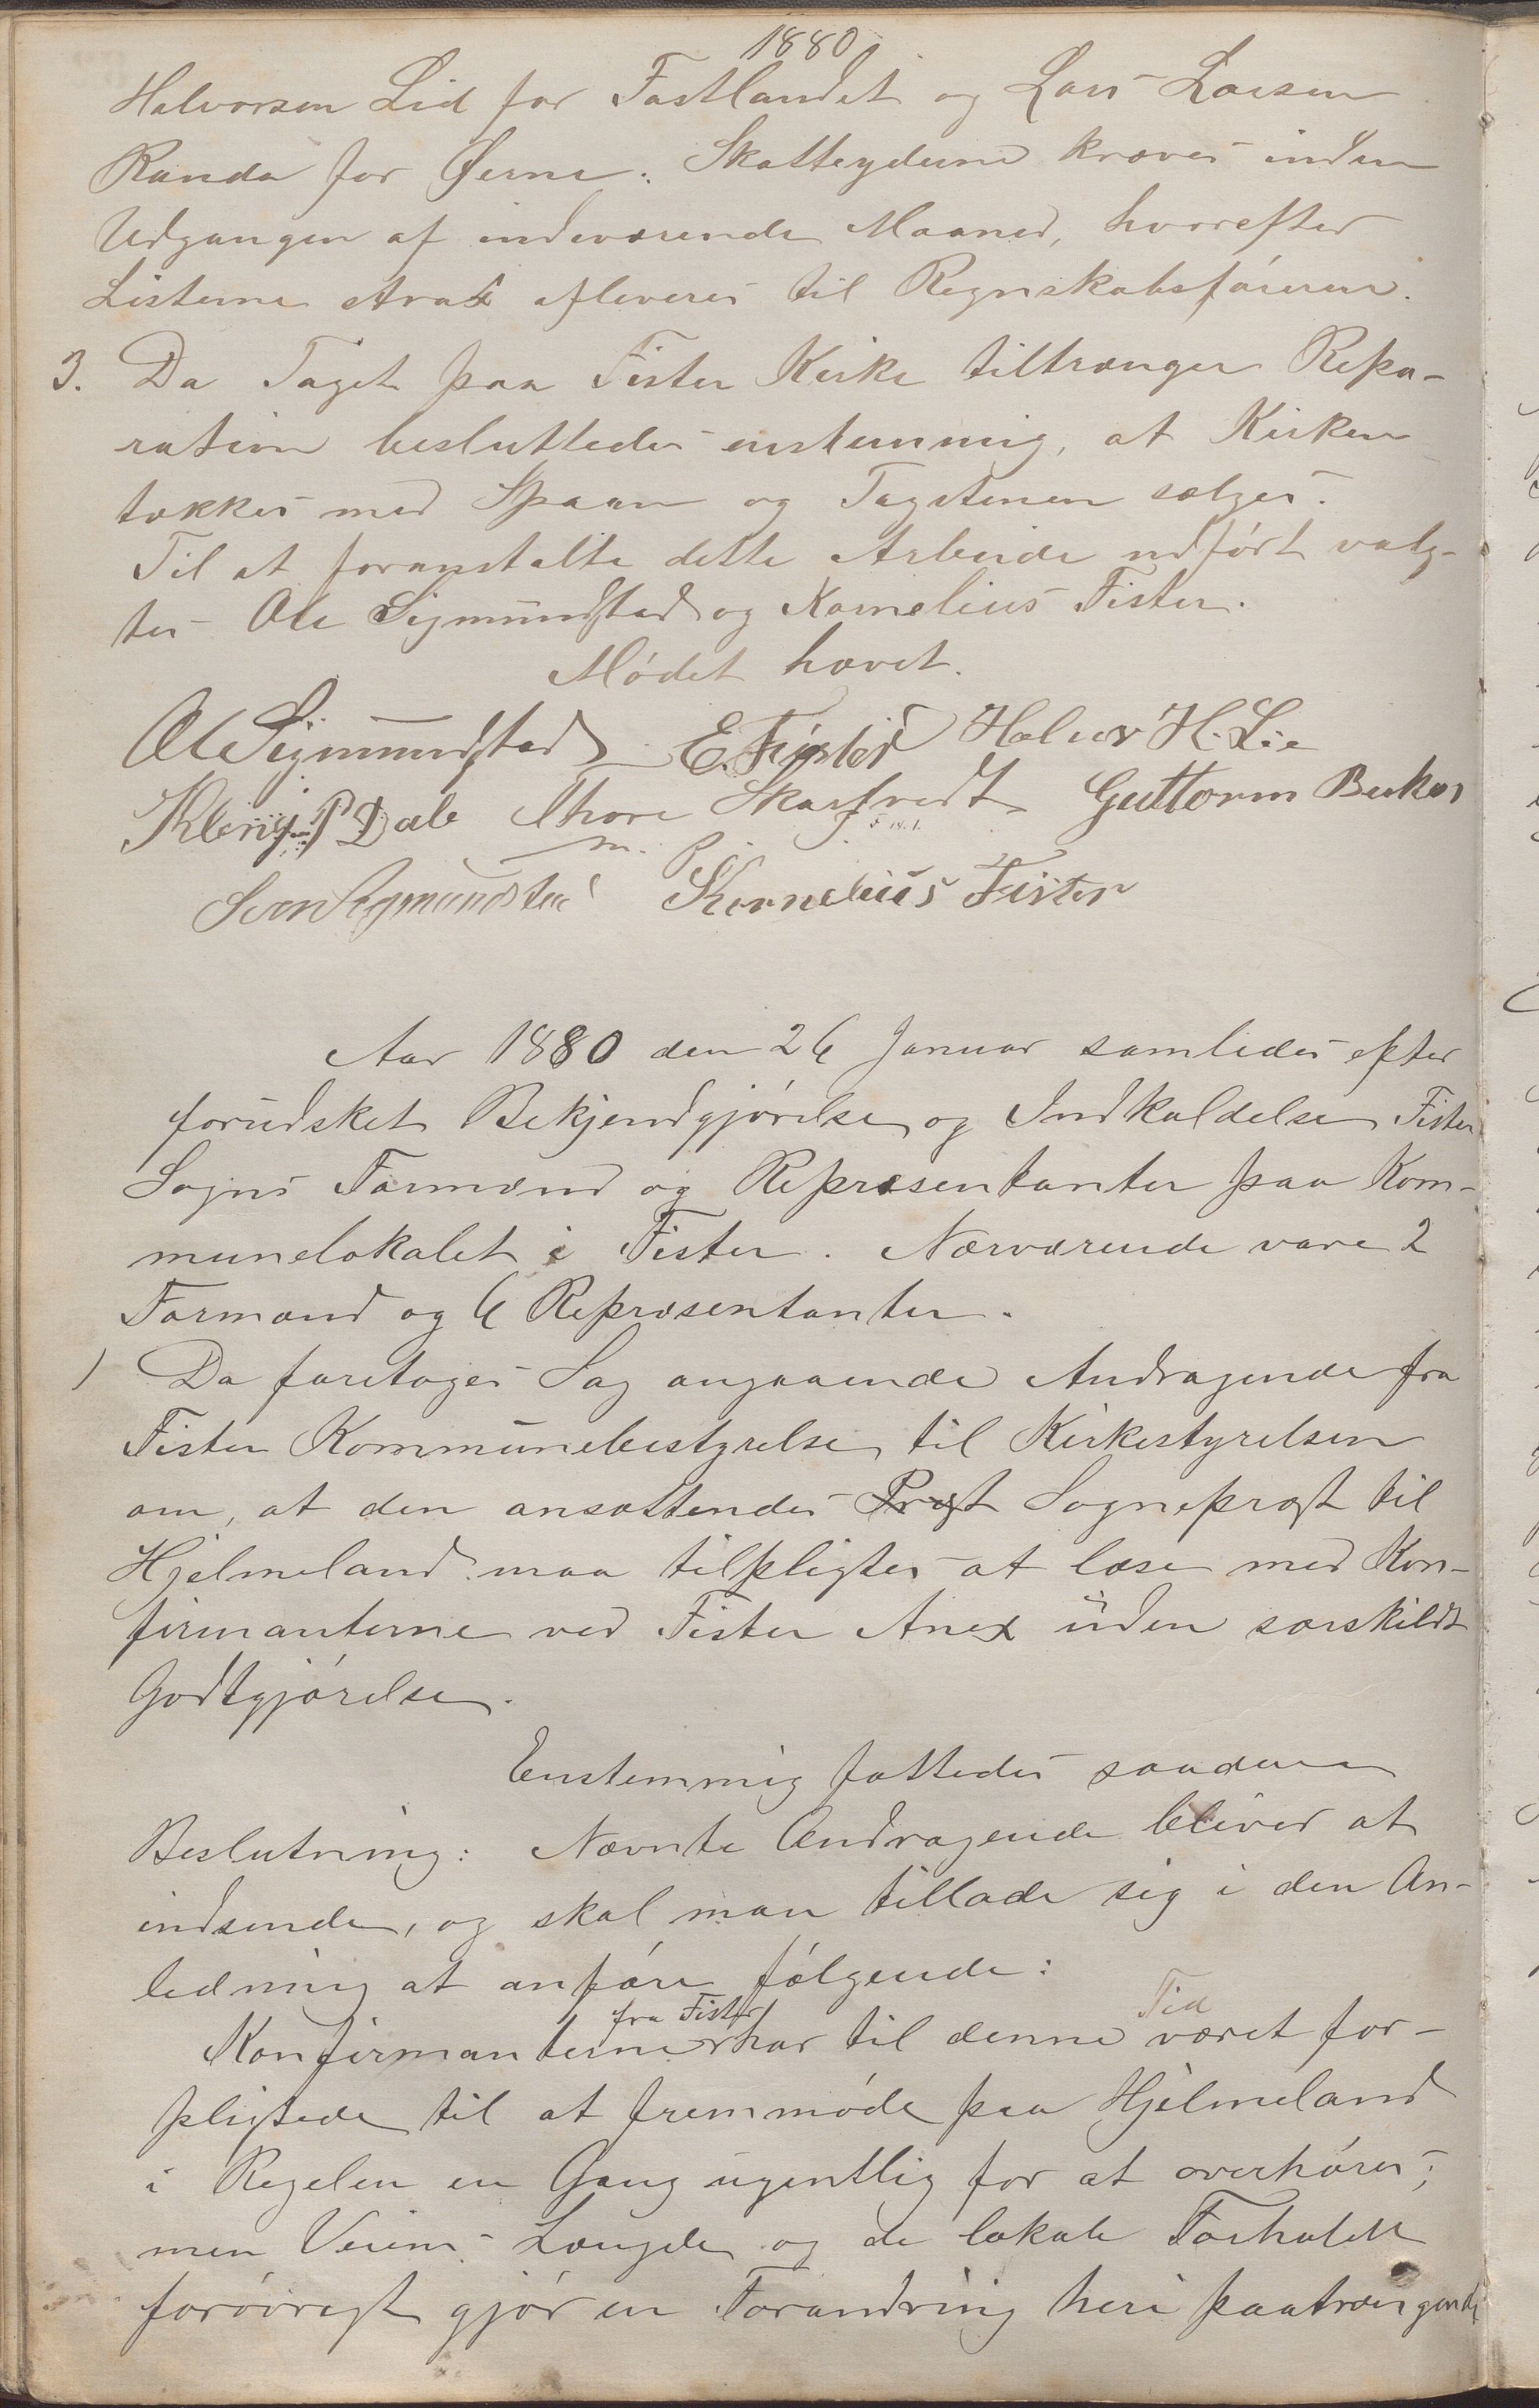 1880
Halvorsen Lid for Fastlandet og Lars Larsen
Randa for Øerne. Skatteyderne kræves inden
Udgangen af indeværende Maaned, hvorefter
Listerne strax afleveres til Regnskabsføreren.
3. Da Taget paa Fister Kirke tiltrænger Repa-
ration besluttedes enstemmig, at Kirken
tækkes med Spaan og Tagstenen sælges.
Til at foranstalte dette Arbeide udført valg-
tes Ole Sigmundstad og Kornelius Fister.
Mødet hævet.
Ole Sigmundstad E. Fister Halvor H. Lie
Kleng P Dale Thore Skarfvedt Guttorm Buker
m. P.
Sven Sigmundstad Kornelius Fister
Aar 1880 den 26 Januar samledes efter
forudsket Bekjendgjørelse og Indkaldelse Fister
Sogns Formænd og Repræsentanter paa Kom-
munelokalet i Fister. Nærværende vare 2
Formænd og 6 Repræsentanter.
1 Da foretoges Sag angaaende Andragende fra
Fister Kommunebestyrelse til Kirkestyrelsen
om, at den ansættendes Præst Sognepræst til
Hjelmeland maa tilpligtes at læse med Kon-
firmanterne ved Fister Anex uden særskildt
Godtgjørelse.
Enstemmig fattedes saadann
Beslutning: Nævnte Andragende bliver at
indsende, og skal man tillade sig i den An-
ledning at anføre følgende:
fra Fister Tid
Konfirmanterne har til denne været for-
pligtede til at fremmøde paa Hjelmeland
i Regelen en Gang ugentlig for at overhøres;
men Veiens Længde og de lokale Forholde
forøvrigt gjør en Forandring heri paatrængende